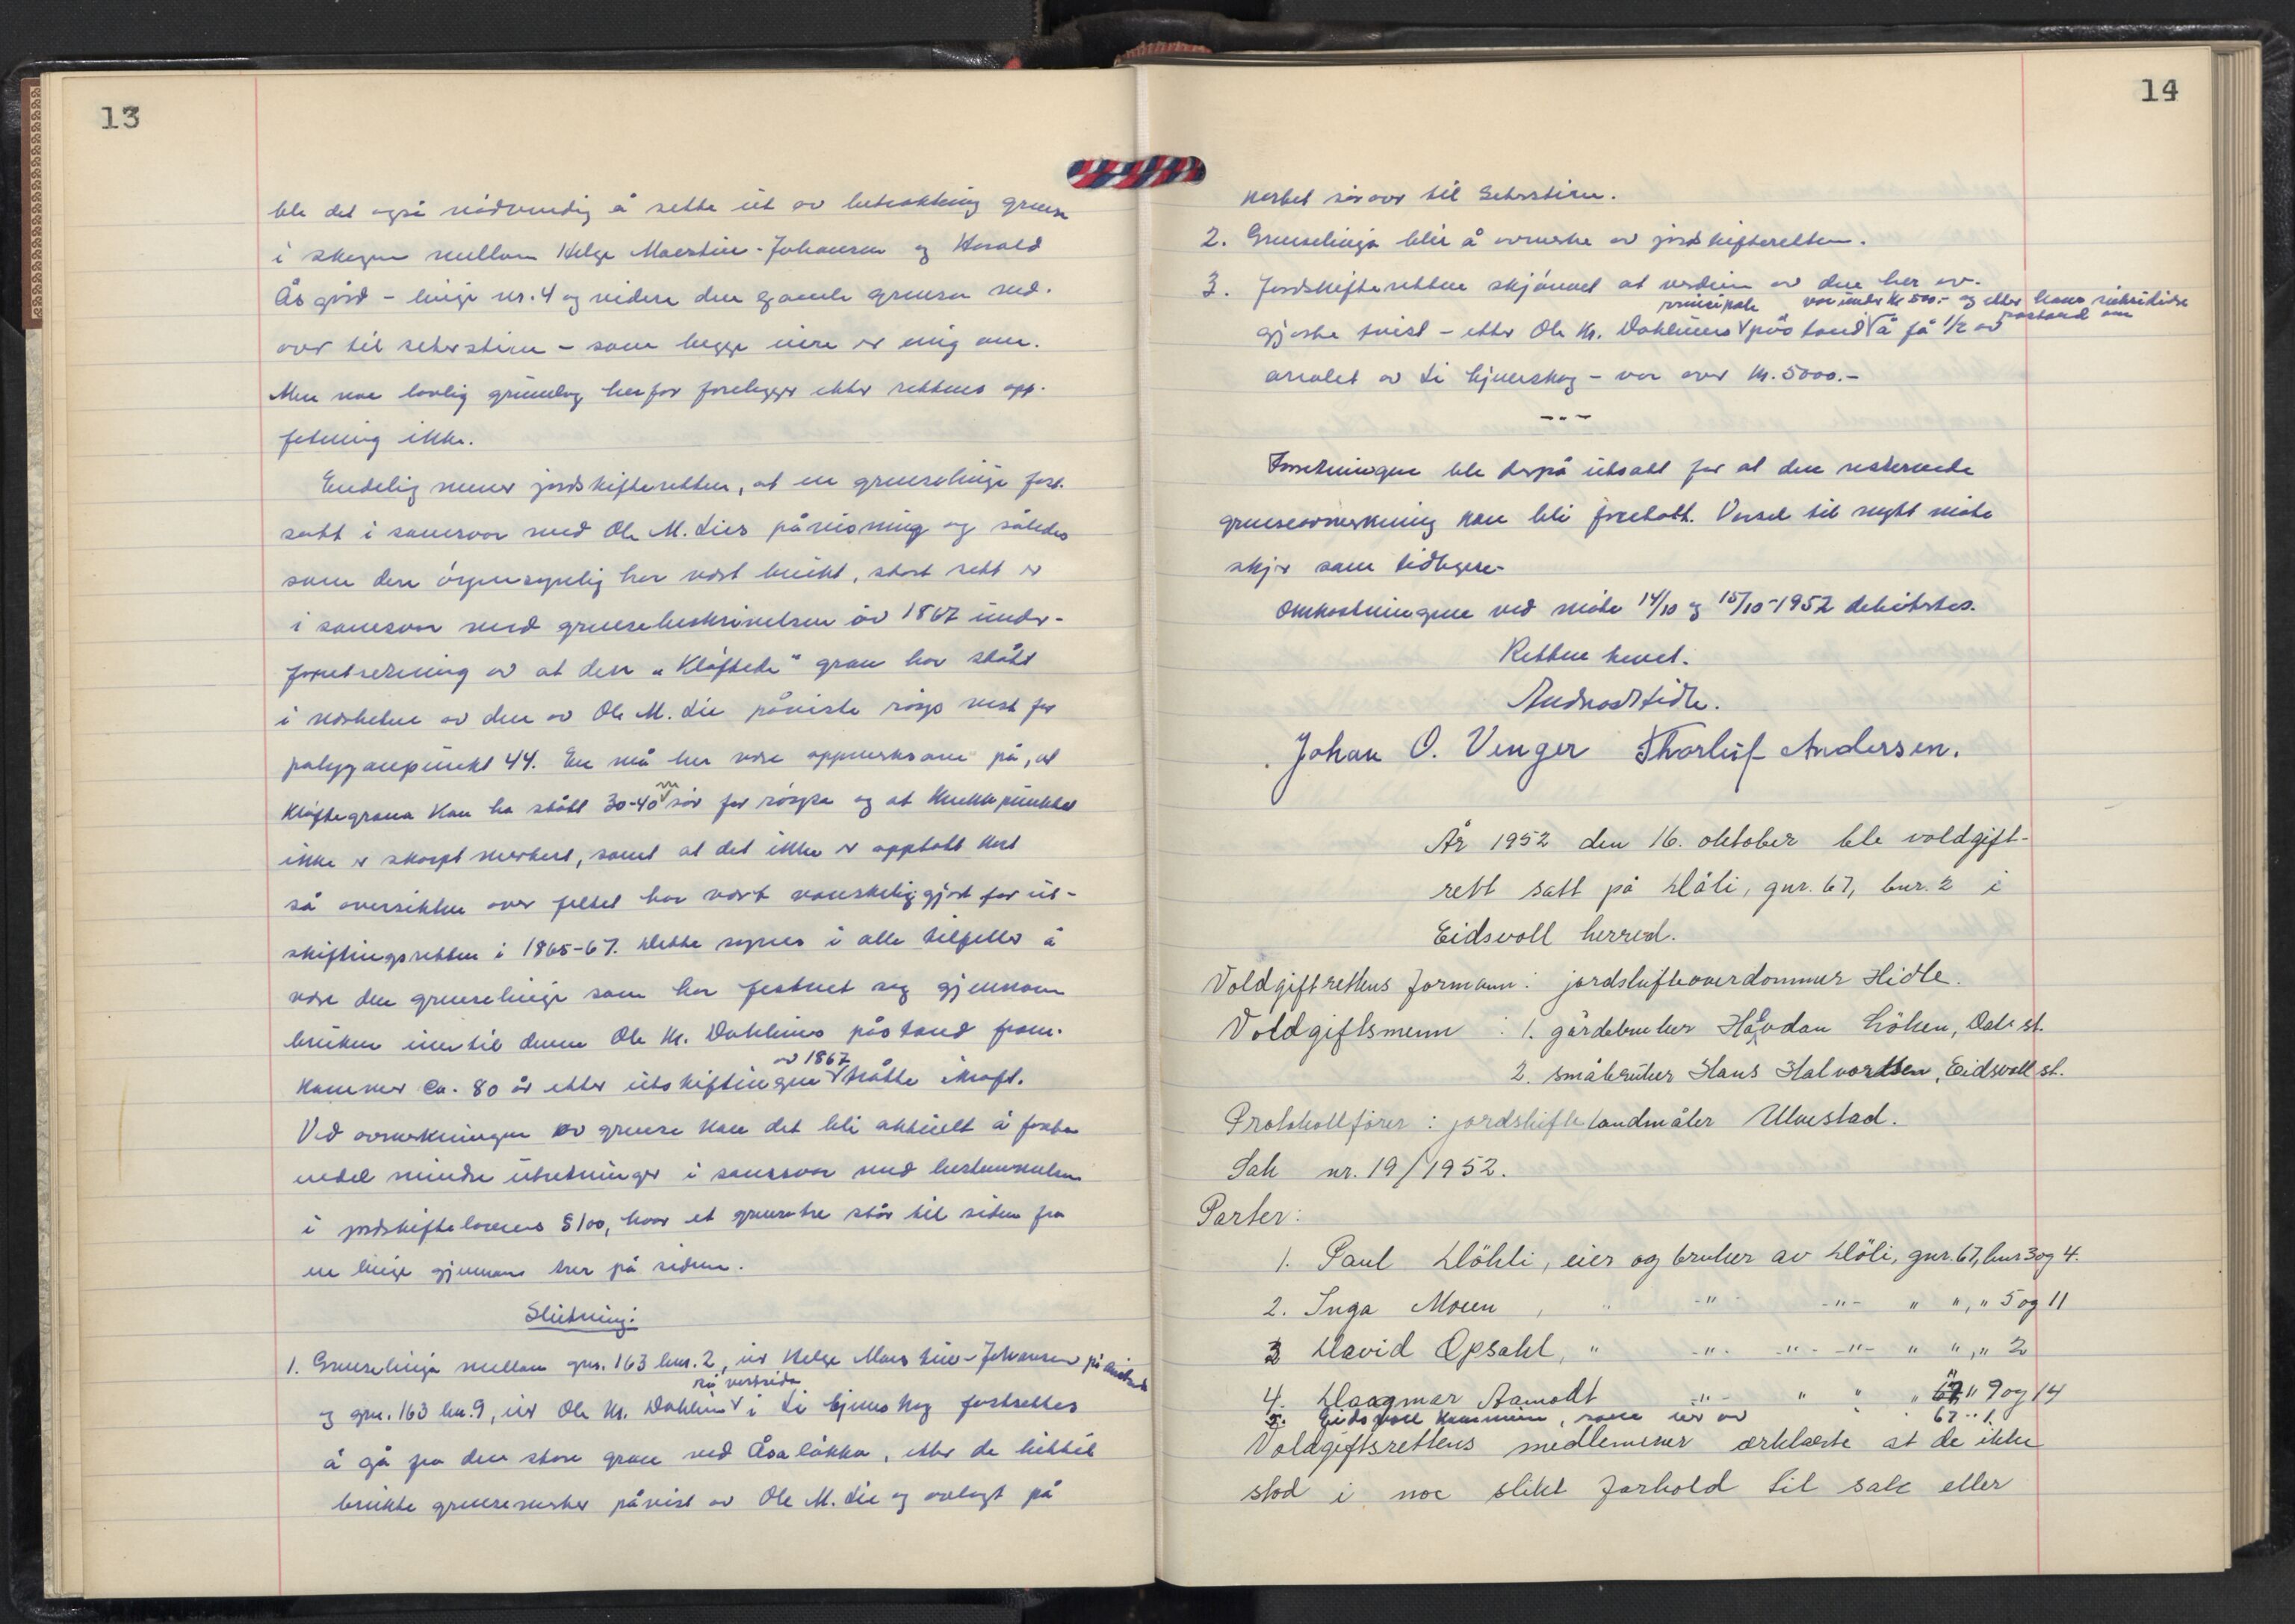 13
ble det også nödvendig å sette ut av betraktning grense
i skogen mellom Helge Martin-Johansen og Harald
Åsgård - linje nr. 4 og videre den gamle grensen ned-
over til seterstien - som begge eiere er enig om.
Men noe lovlig grunnlag herfor foreligger etter rettens opp-
fatning ikke.
Endelig mener jordskifteretten, at en grenselinje fast-
satt i samsvar med Ole M. Lies påvisning og således
som den öyensynlig har vært brukt, stort sett er
i samsvar med grensebeskrivelsen av 1867 under
forutsetning av at den "Klöftede" gran har stått
i nærheten av den av Ole M. Lie påviste röys vest for
polygonpunkt 44. En må her være oppmerksom på, at
Klöftegrana kan ha stått 30-40 m sör for röysa og at knekkpunktet
ikke er skarpt markert, samt at det ikke er opptatt kart
så oversikten over feltet har vært vanskeliggjort for ut-
skiftingsretten i 1865-67. Dette synes i alle tilfeller å
være den grenselinje som har festnet seg gjennom
bruken inntil denne Ole Kr. Dahlens påstand frem-
kommer ca. 80 år etter utskiftingen av 1867 trådte i kraft.
Ved avmerkningen av grense kan det bli aktuelt å foreta
endel mindre utretninger i samsvar med bestemmelsen
i jordskiftelovens § 100, hvor et grensetre står til siden for
en linje gjennom trær på siden.
Slutning:
1. Grenselinja mellom gnr. 163 bnr. 2, eier Helge Martin-Johansen på austsida
og gnr. 163 bnr. 9, eier Ole Kr. Dahlen på vestsida i Li hjemskog fastsettes
å gå fra den store gran ved Åsalökka, etter de hittil
brukte grensemerker påvist av Ole M. Lie og avlagt på
14
kartet sörover til Seterstien.
2. Grenselinja blir å avmerke av jordskifteretten.
3. Jordskifteretten skjönnet at verdien av den her av-
gjorte tvist - etter Ole Kr. Dahlens principale påstand var under kr 500.- og etter hans subsidiære påstand om å få 1/2 av
arealet av Li hjemskog - var over kr. 5000.-
---
Forretningen ble derpå utsatt for at den resterende
grenseavmerkning kan bli foretatt. Varsel til nytt möte
skjer som tidligere.
Omkostningene ved möte 14/10 og 15/10-1952 debiteres.
Retten hevet.
Andreas Hidle.
Johan O. Venger Thorleif Andersen.
År 1952 den 16. oktober ble voldgift-
rett satt på Döli, gnr. 67, bnr. 2 i
Eidsvoll herred.
Voldgiftrettens formann: jordskifteoverdommer Hidle.
Voldgiftsmenn : 1. gårdebruker Håvdan Löken, Dal st.
2. småbruker Hans Halvorsen, Eidsvoll st.
Protokollförer : jordskiftelandmåler Ulvestad.
Sak nr. 19/1952.
Parter:
1. Paul Döhli, eier og bruker av Döli, gnr. 67, bnr 3 og 4.
2. Inga Moen , " -"- -"- " ", " 5 og 11
3 David Opsahl, " -"- -"- -"- " ", " 2
4. Daagmar Aamodt -"- " " " 67, " 9 og 14
5. Eidsvoll kommune, som eier av " " 67 " 1.
Voldgiftsrettens medlemmer erklærte at de ikke
stod i noe slikt forhold til sak eller